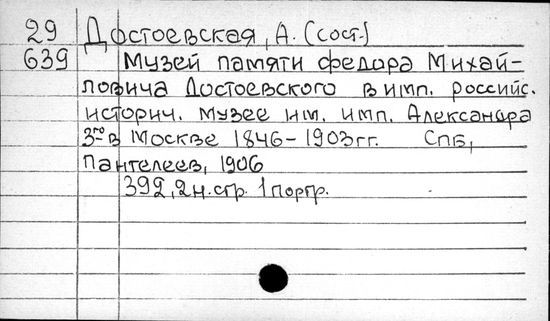 29 Достоевская, А. (сост.)
639 Музей памяти федора Михай-
ловича Достоевского в имп. российс.
историч. музее им. имп. Александра
3го в Москве 1846-1903гг. СПБ,
Пантелеев, 1906
392, 2 н. стр. 1 портр.